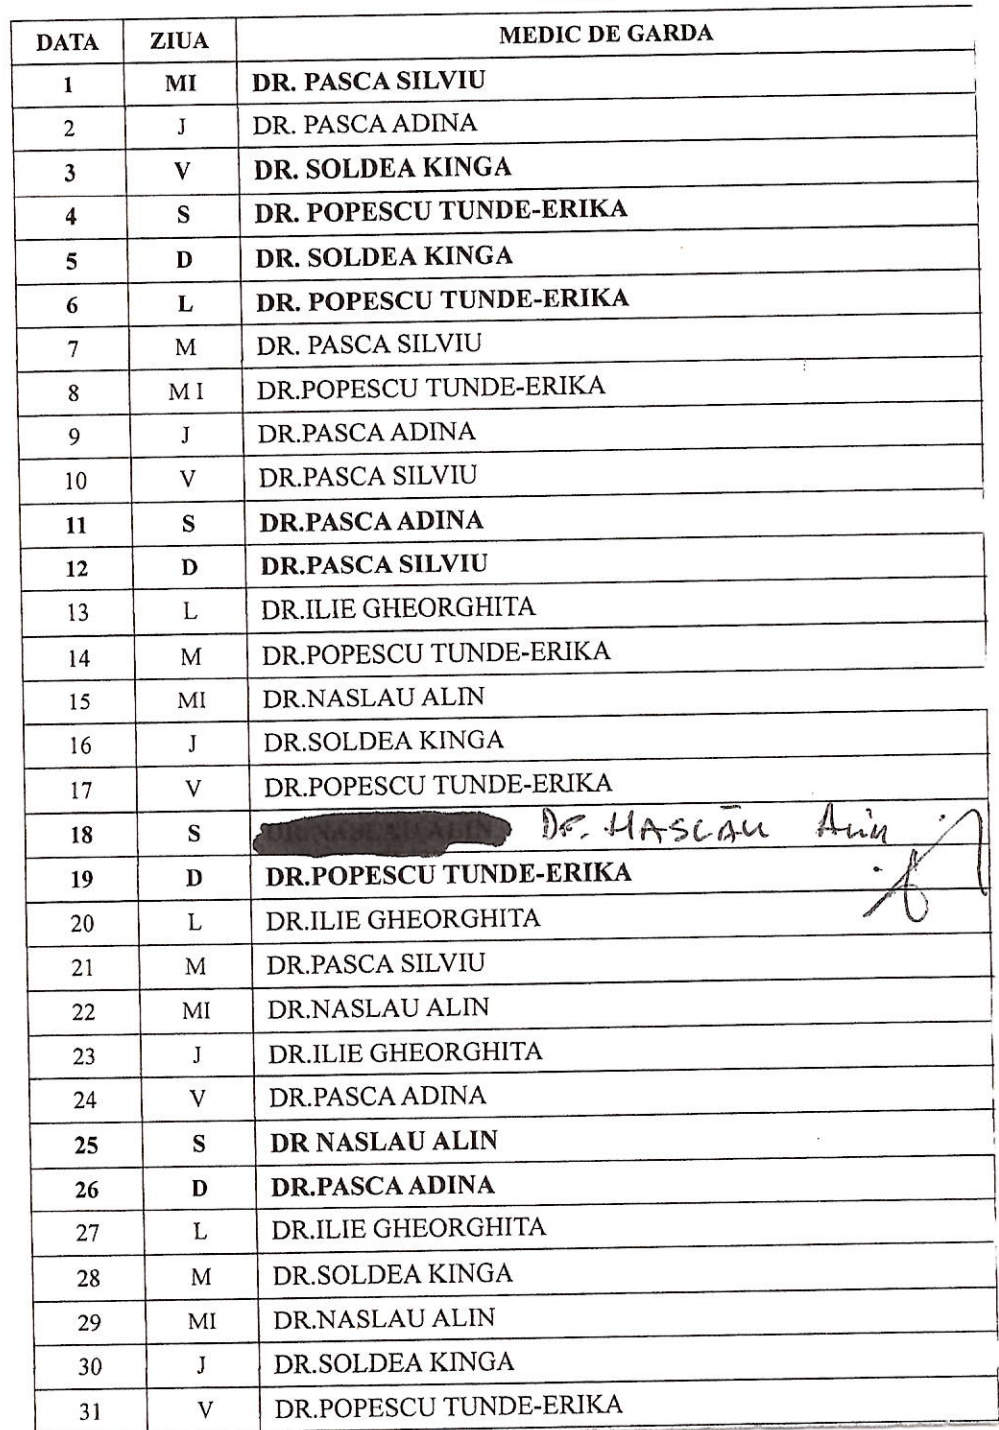 DATA ZIUA MEDIC DE GARDA
1 MI DR. PASCA SILVIU
2 J DR. PASCA ADINA
3 V DR. SOLDEA KINGA
4 S DR. POPESCU TUNDE-ERIKA
5 D DR. SOLDEA KINGA
6 L DR. POPESCU TUNDE-ERIKA
7 M DR. PASCA SILVIU
8 M I DR.POPESCU TUNDE-ERIKA
9 J DR.PASCA ADINA
10 V DR.PASCA SILVIU
11 S DR.PASCA ADINA
12 D DR.PASCA SILVIU
13 L DR.ILIE GHEORGHITA
14 M DR.POPESCU TUNDE-ERIKA
15 MI DR.NASLAU ALIN
16 J DR.SOLDEA KINGA
17 V DR.POPESCU TUNDE-ERIKA
18 S Dr. Alin
19 D DR.POPESCU TUNDE-ERIKA
20 L DR.ILIE GHEORGHITA
21 M DR.PASCA SILVIU
22 MI DR.NASLAU ALIN
23 J DR.ILIE GHEORGHITA
24 V DR.PASCA ADINA
25 S DR NASLAU ALIN
26 D DR.PASCA ADINA
27 L DR.ILIE GHEORGHITA
28 M DR.SOLDEA KINGA
29 MI DR.NASLAU ALIN
30 J DR.SOLDEA KINGA
31 V DR.POPESCU TUNDE-ERIKA